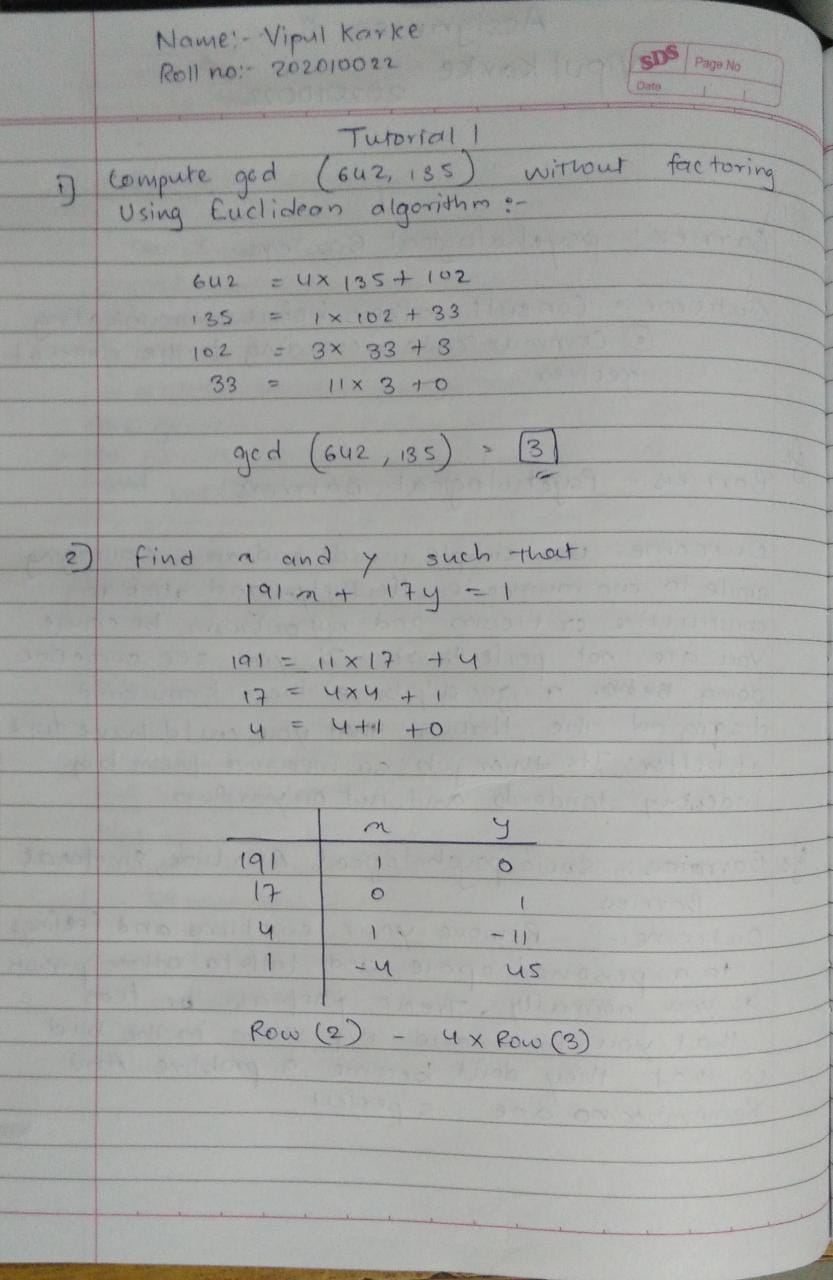 Name:- Vipul Karke
Roll no:- 202010022
SDS Page No
Date
Tutorial 1
1) Compute gcd (642, 135) without factoring
Using Euclidean algorithm :-
642 = 4 x 135 + 102
135 = 1 x 102 + 33
102 = 3 x 33 + 3
33 = 11 x 3 + 0
gcd (642, 135) = 3
2) find x and y such that
191x + 17y = 1
191 = 11 x 17 + 4
17 = 4x4 + 1
4 = 4+1 +0
x y
191 1 0
17 0 1
4 1 -11
1 -4 45
Row (2) - 4 x Row (3)